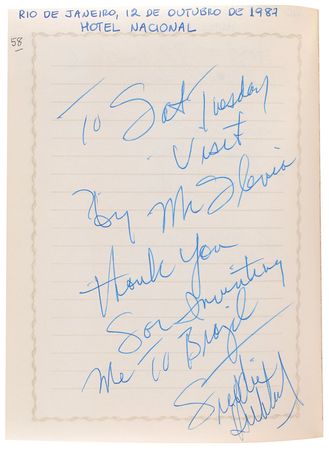 RIO DE JANEIRO, 12 DE OUTUBRO DE 1987
HOTEL NACIONAL
58
To Tuesday
Visit
By Mr
Thank You
For Inviting
Me To Brazil
Freddie
Hubbard